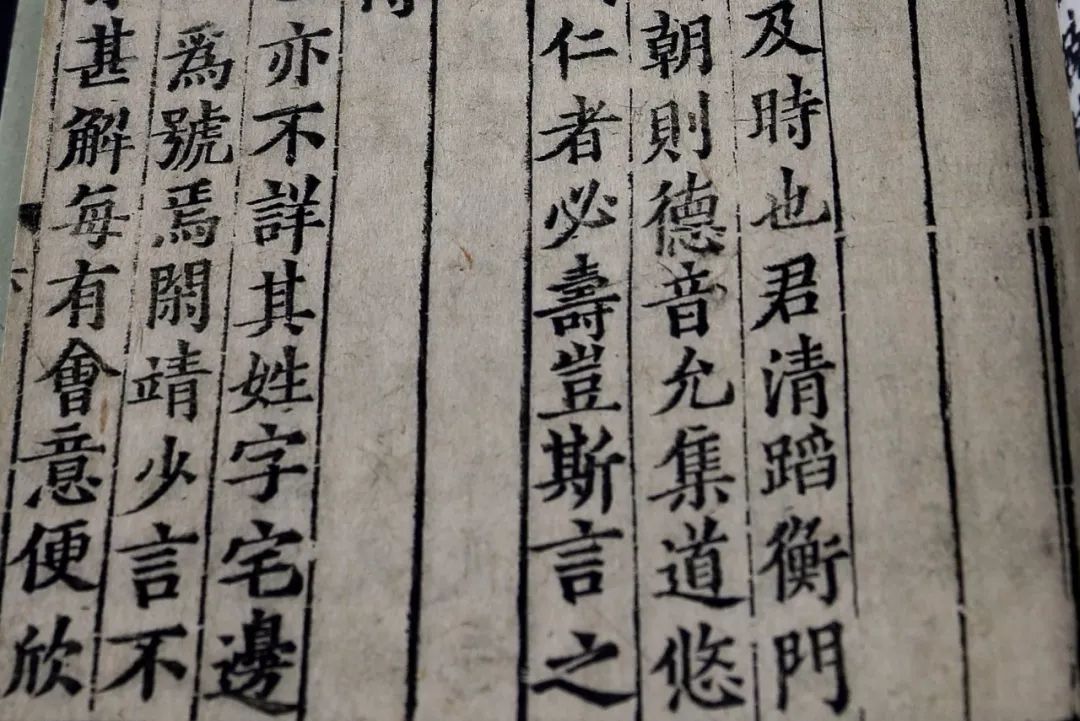 及時也君清蹈衡門
朝則德音允集道悠
仁者必壽豈斯言之
亦不詳其姓字宅邊
爲號焉閑靖少言不
甚解每有會意便欣